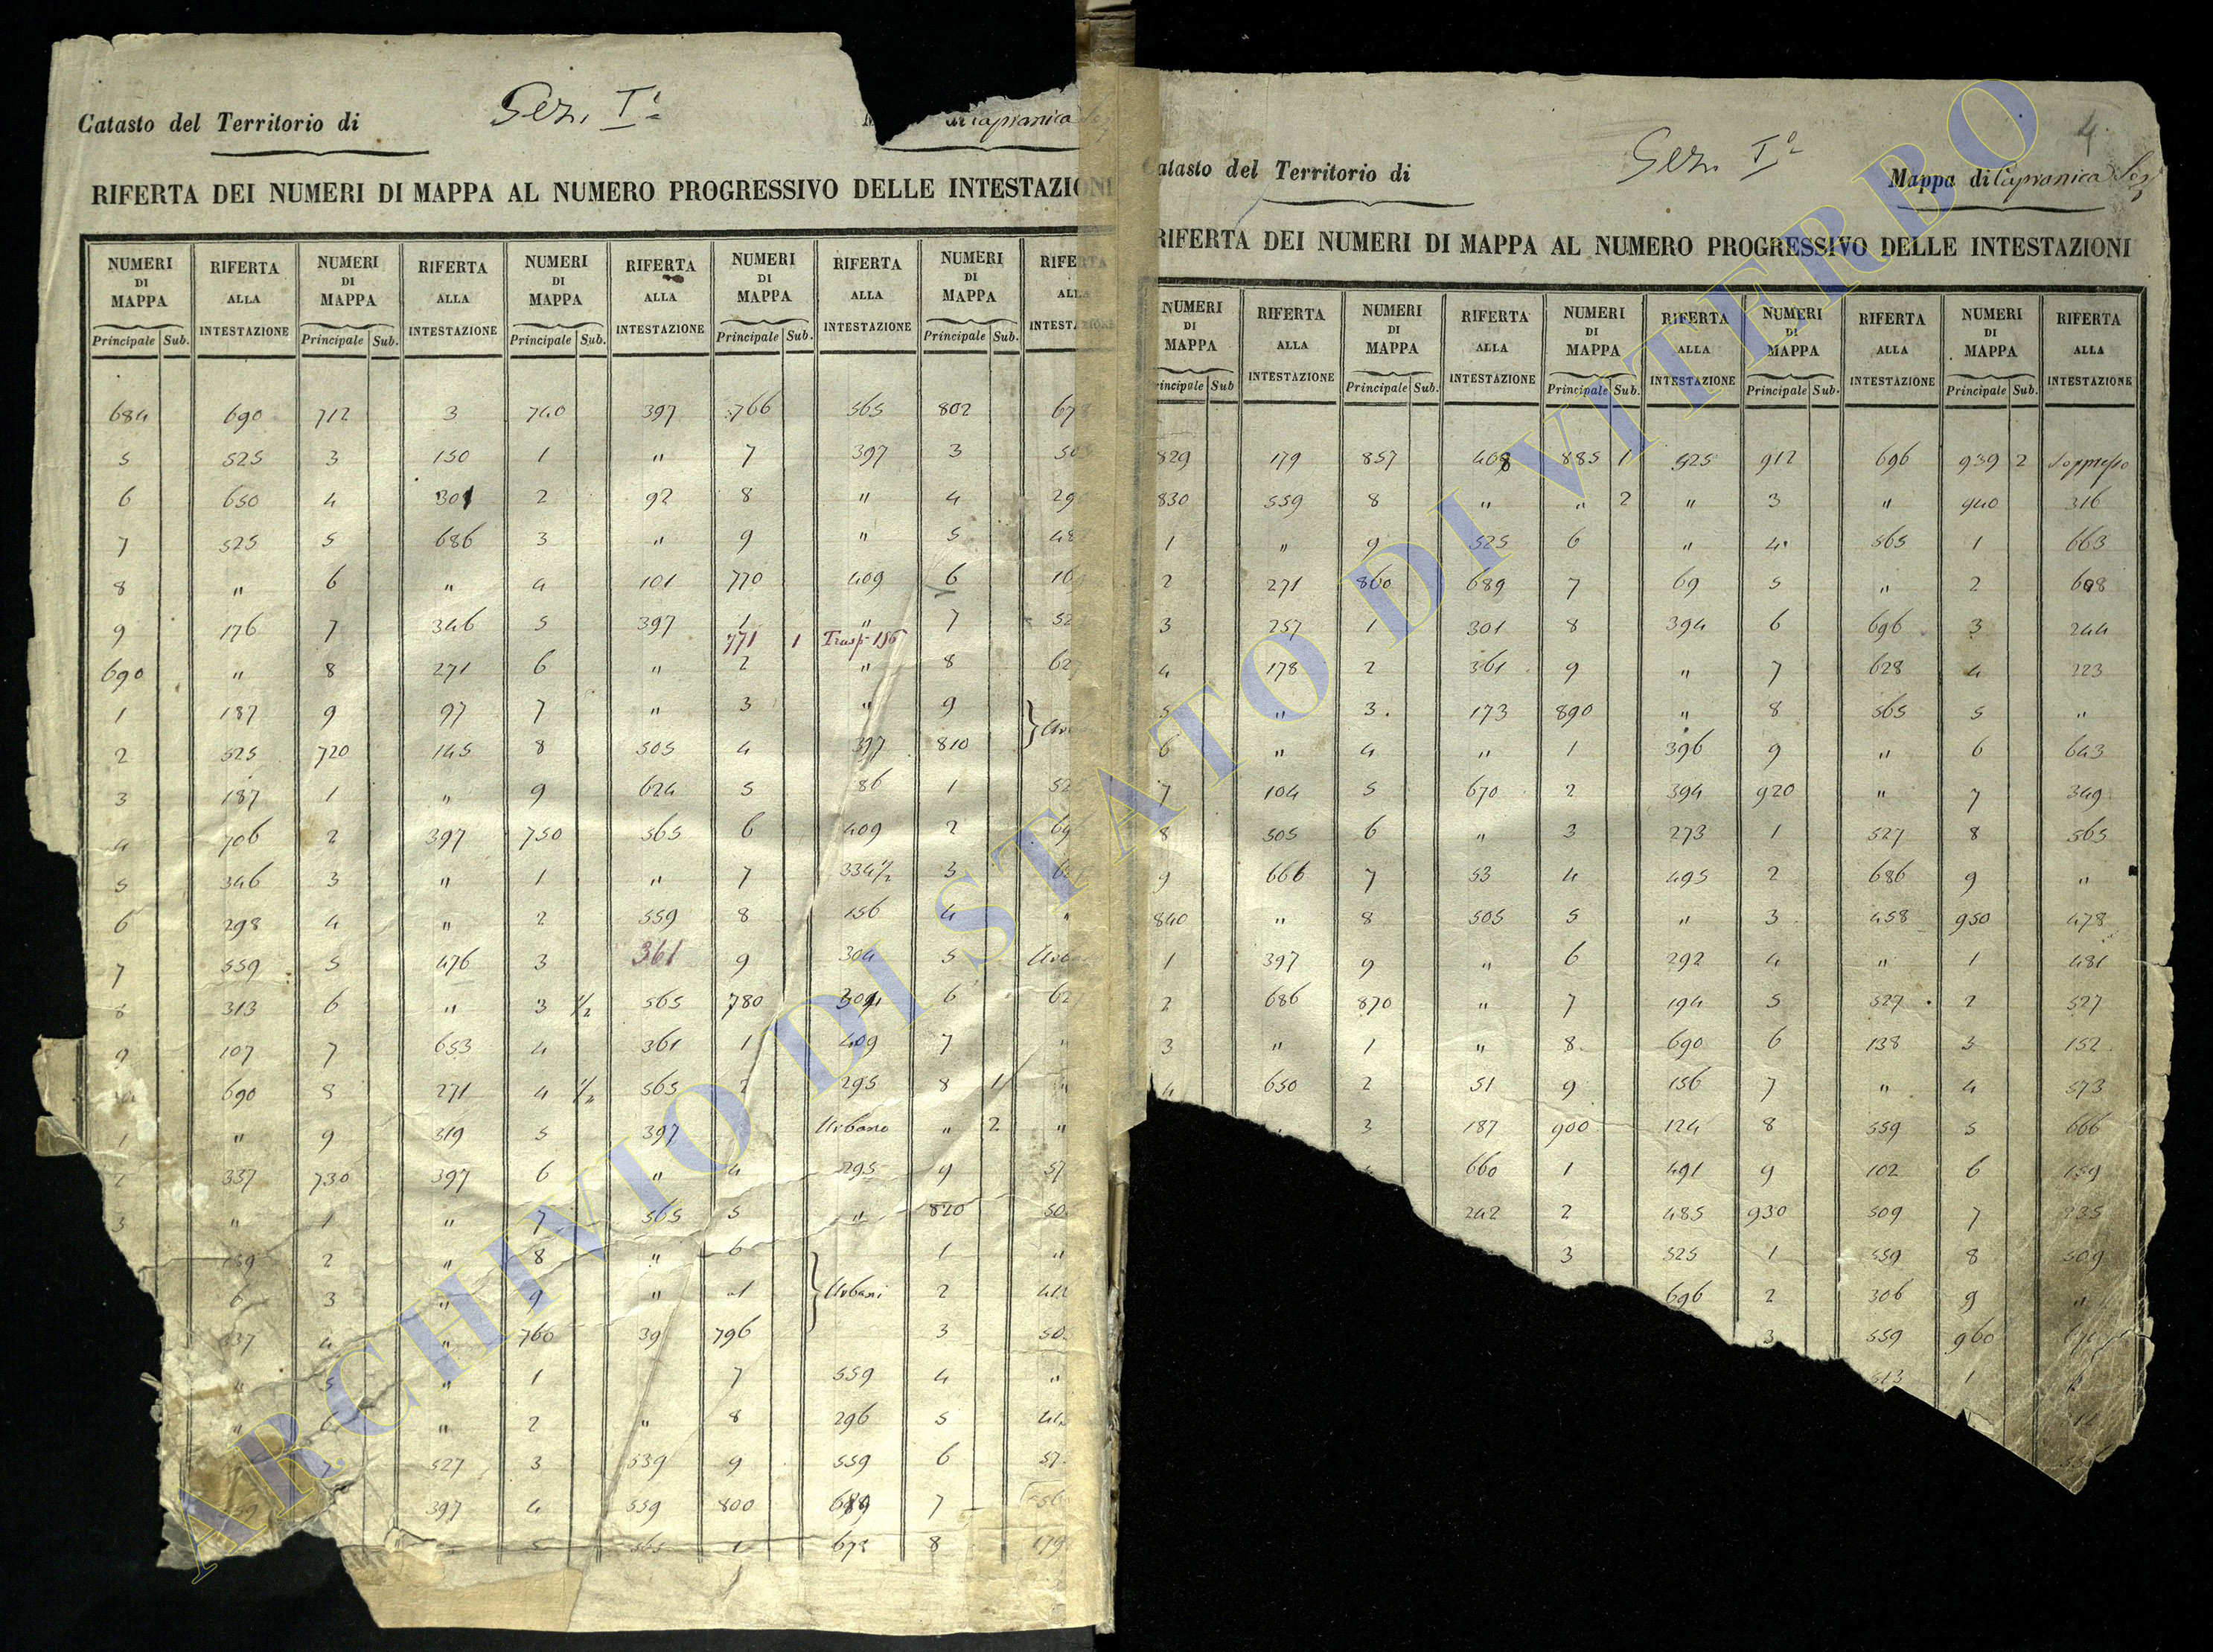 Catasto del Territorio di Sez. Iª di Capranica
RIFERTA DEI NUMERI DI MAPPA AL NUMERO PROGRESSIVO DELLE INTESTAZIONI
NUMERI DI MAPPA RIFERTA ALLA INTESTAZIONE NUMERI DI MAPPA RIFERTA ALLA INTESTAZIONE NUMERI DI MAPPA RIFERTA ALLA INTESTAZIONE NUMERI DI MAPPA RIFERTA ALLA INTESTAZIONE NUMERI DI MAPPA
Principale Sub. Principale Sub. Principale Sub. Principale Sub. Principale Sub.
684 690 712 3 740 397 766 565 802 678
5 525 3 150 1 " 7 397 3
6 650 4 301 2 92 8 " 4
7 525 5 686 3 " 9 " 5
8 " 6 " 4 101 770 409 6
9 176 7 346 5 397 1 " 7
771 1 Trasp. 186
690 " 8 271 6 " 2 " 8
1 187 9 97 7 " 3 " 9
2 525 720 145 8 505 4 397 810
3 187 1 " 9 624 5 86 1
4 706 2 397 750 565 6 409 2
5 346 3 " 1 " 7 334½ 3
6 298 4 " 2 559 8 156 4 "
7 559 5 476 3 361 9 304 5
8 313 6 " 3 ½ 565 780 6
9 107 7 653 4 361 1 409 7 "
690 8 271 4 ½ 565 2 295 8 1 "
1 " 9 319 5 397 Urbano " 2 "
337 730 397 6 " 4 295 9
3 " 1 " 7 565 5 " 820
2 " 8 " 6 1 "
3 " 9 " Urbani 2
4 " 760 796 3
" 5 " 1 7 559 4 "
" 6 " 2 " 8 296 5
7 527 3 539 9 559 6
397 4 559 800 689 7
5 565 1 673 8 179
4
Catasto del Territorio di Sez. Iª Mappa di Capranica Sez
RIFERTA DEI NUMERI DI MAPPA AL NUMERO PROGRESSIVO DELLE INTESTAZIONI
NUMERI DI MAPPA RIFERTA ALLA INTESTAZIONE NUMERI DI MAPPA RIFERTA ALLA INTESTAZIONE NUMERI DI MAPPA RIFERTA ALLA INTESTAZIONE NUMERI DI MAPPA RIFERTA ALLA INTESTAZIONE NUMERI DI MAPPA RIFERTA ALLA INTESTAZIONE
Principale Sub Principale Sub. Principale Sub. Principale Sub. Principale Sub.
829 179 857 408 885 1 525 912 696 939 2 Soppresso
830 559 8 " " 2 " 3 " 940 316
1 " 9 525 6 " 4 565 1 663
2 271 860 689 7 69 5 " 2 608
3 257 1 301 8 394 6 696 3 244
4 178 2 361 9 " 7 628 4 223
5 " 3 173 890 " 8 565 5 "
6 " 4 " 1 396 9 " 6 643
7 104 5 670 2 394 920 " 7 349
8 505 6 " 3 273 1 527 8 565
9 666 7 53 4 495 2 686 9 "
840 " 8 505 5 " 3 458 950 478
1 397 9 " 6 292 4 " 1 481
2 686 870 " 7 194 5 527 2 527
3 " 1 " 8 690 6 138 3 152
4 650 2 51 9 156 7 " 4 573
3 187 900 124 8 559 5 666
660 1 491 9 102 6 159
242 2 485 930 509 7 235
3 525 1 559 8 509
696 2 306 9 "
3 559 960
513 1
ARCHIVIO DI STATO DI VITERBO